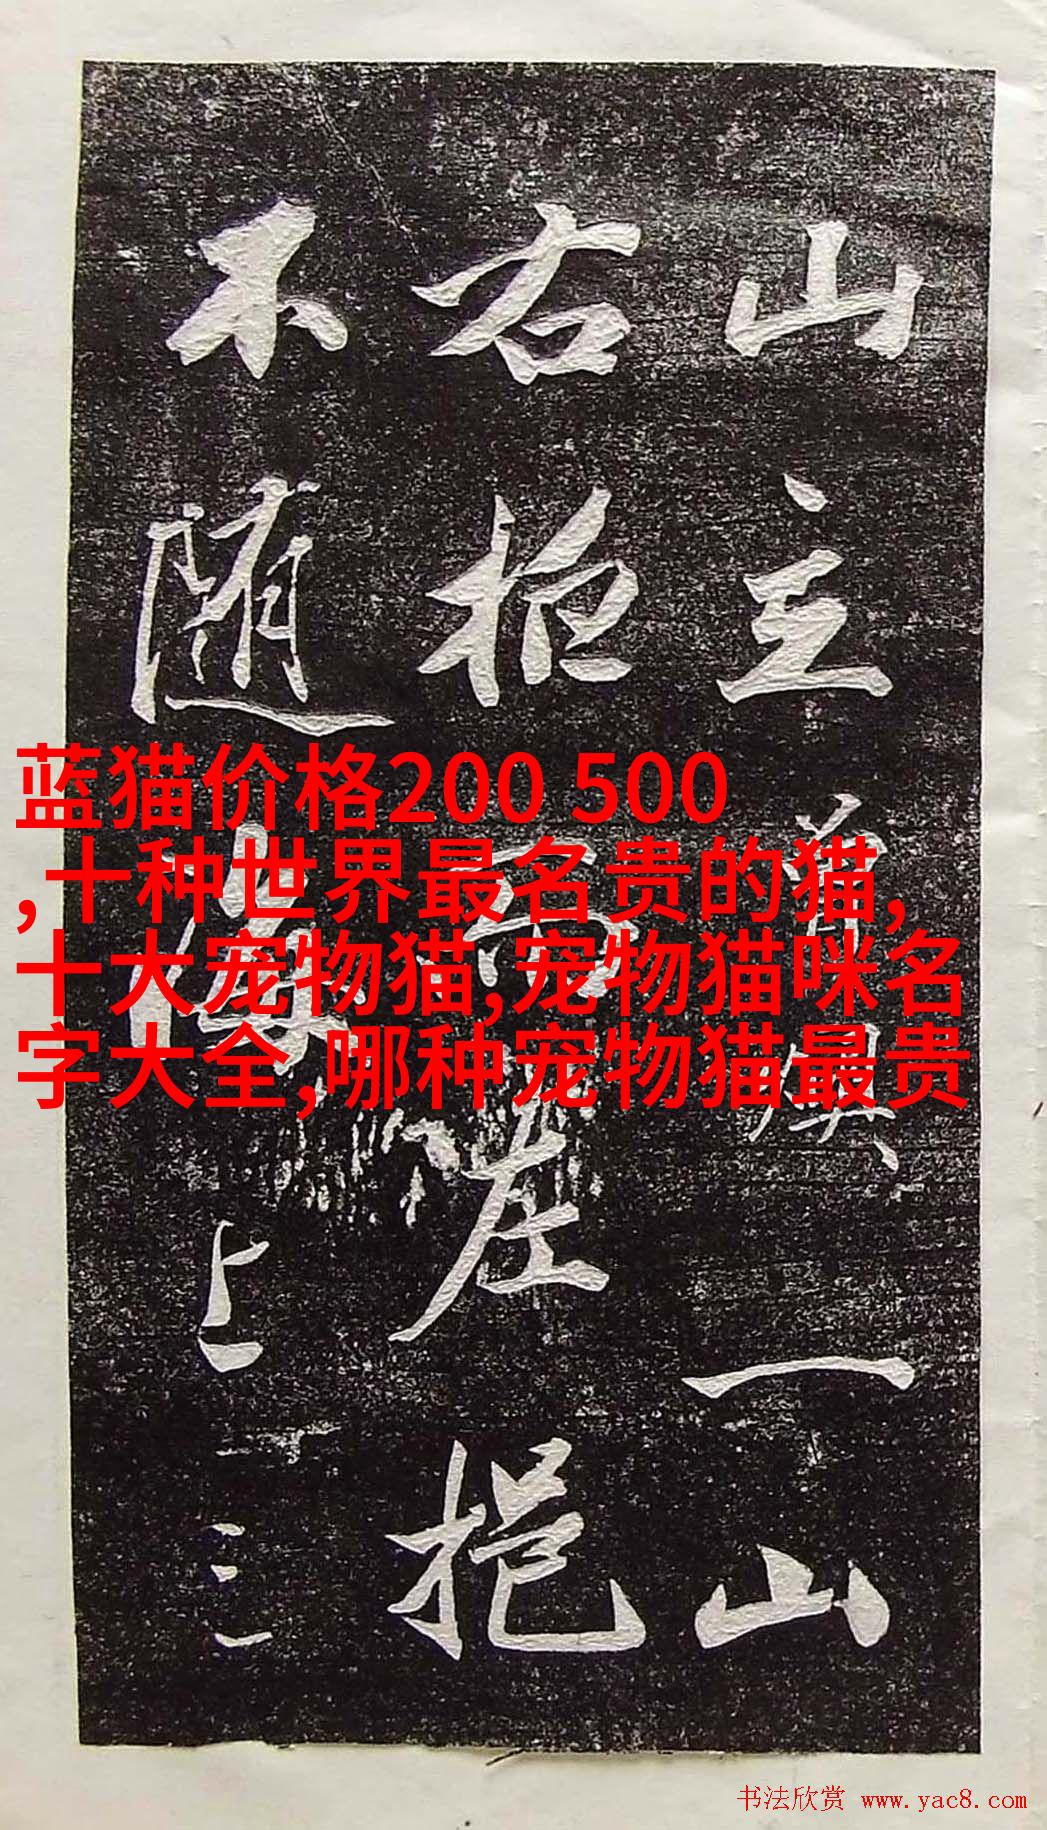 山主曾奥一山
右拖而左挹
不随海上三
蓝猫价格200 500
,十种世界最名贵的猫,
十大宠物猫,宠物猫咪名
字大全,哪种宠物猫最贵
书法欣赏 www.yac8.com